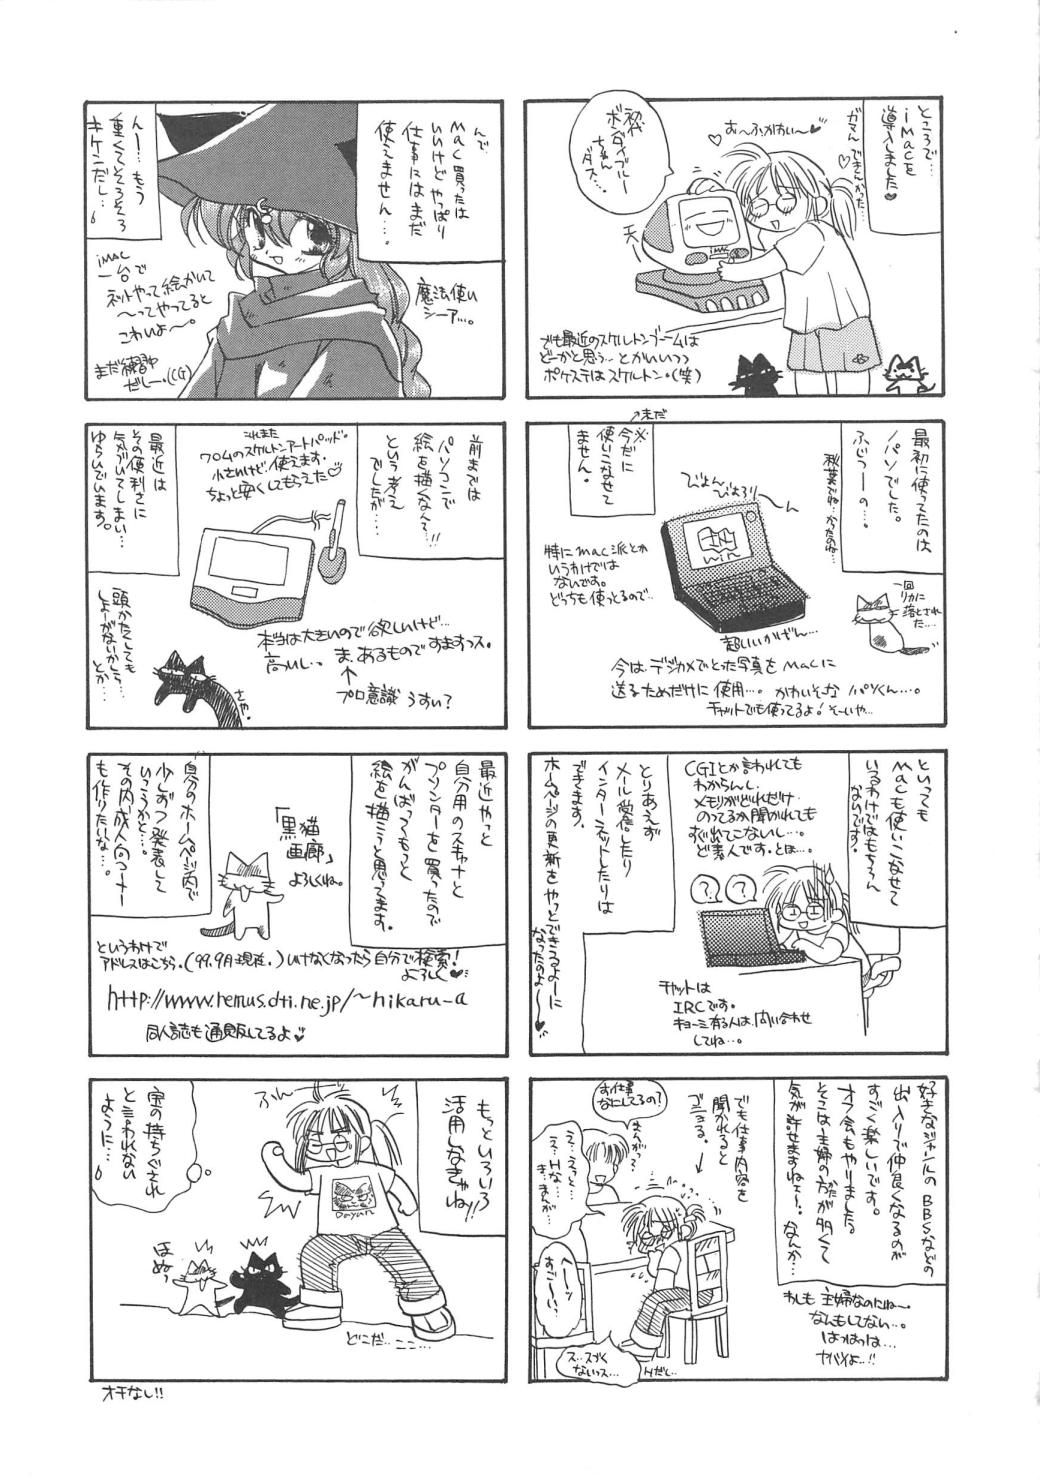 ところで…
iMacを
導入しました♥
ガマんできんかった…
お〜ふかわい〜♥
初代
ボンダイブルー
ちゃん
ダス…。
iMAC
でも最近のスケルトンブームは
どーかと思う… とかいいつつ
ポケステはスケルトン。(笑)
最初に使ってたのは
ノパソでした。
ふじつーの…。
秋葉でね…かったのね…
※
今だに
使いこなせて
ません。
→まだ
びよん
びよろり
〜ん
win
特に mac 派とか
いうわけでは
ないです。
どっちも使っとるので…
超いいかげん…
一回
リカに
落とされ
た……
今は、デジカメでとった写真を macに
送るためだけに 使用…。かわいそーな ノパソくん…。
チャットでも使ってるよ! そーいや…
といっても
macも使いこなせて
いるわけではもちろん
ないです。
CGIとか言われても
わからんし、
メモリがどれだけ
のってるか聞かれても
すぐ出てこないし…。
ど素人です。とほ…。
？？
とりあえず
メール受信したり
インターネットしたりは
できます。
ホームページの更新をやっとできるよーに
なったのよ〜♥
チャットは
IRCです。
キョーミ有る人は、問い合わせ
してね…。
好きなジャンルのBBSなどの
出入りで仲良くなるのが
すごく楽しいです。
オフ会もやりました。
そこは主婦の方が多くて
気が許せますねェ…。なんか…
わしも 主婦なのにね〜
なんもしてない…。
はっはっは…
ヤバイよ…!!
でも仕事内容を
聞かれると
ゴニョる。
お仕事
なにしてるの?
まんが?
え…えっと…
え…Hな…
ま…まんが
へ〜っ
すご〜い
ス…スゴく
ないっス…
Hだし…
んで
mac買ったは
いいけど やっぱり
仕事にはまだ
使えません…。
んー… もう
重くてそろそろ
キケンだし…。
iMAC
一台で
ネットやって絵かいて
〜ってやってると
こわいよ〜。
まだ練習中
だしー。(CG)
魔法使い
シーア…。
前までは
パソコンで
絵を描くなんて!!
という考え
でしたが…
これまた
ワコムのスケルトンアートパッド。
小さいけど、使えます。
ちょっと安くしてもらえた♡
最近は
その便利さに
気がついてしまい…
ゆらいでいます。
本当は大きいので欲しいけど…
高いし…。 ま、あるものですますっス。
↑
プロ意識 うすい?
頭かたくしても
しょーがないかしら…
とか…
さた。
最近やっと
自分用のスキャナと
プリンターを買ったので
がんばってもっと
絵を描こうと思ってます。
「黒猫
画廊」
よろしくね。
自分のホームページ内で
少しずつ発表して
いこうかと…。
その内、成人向コーナー
も作りたいな…。
というわけで
アドレスはこちら。(99.9月現在。)いけなくなったら自分で検索!
よろしく♥
http://www.remus.dti.ne.jp/~hikaru-a
同人誌も通販してるよ♥
もっといろいろ
活用しなきゃね!!
ふんっ
Dayan
宝の持ちぐされ
と言われない
ように…。
ほぬっ
どこだ… ここ…
オチなし!!